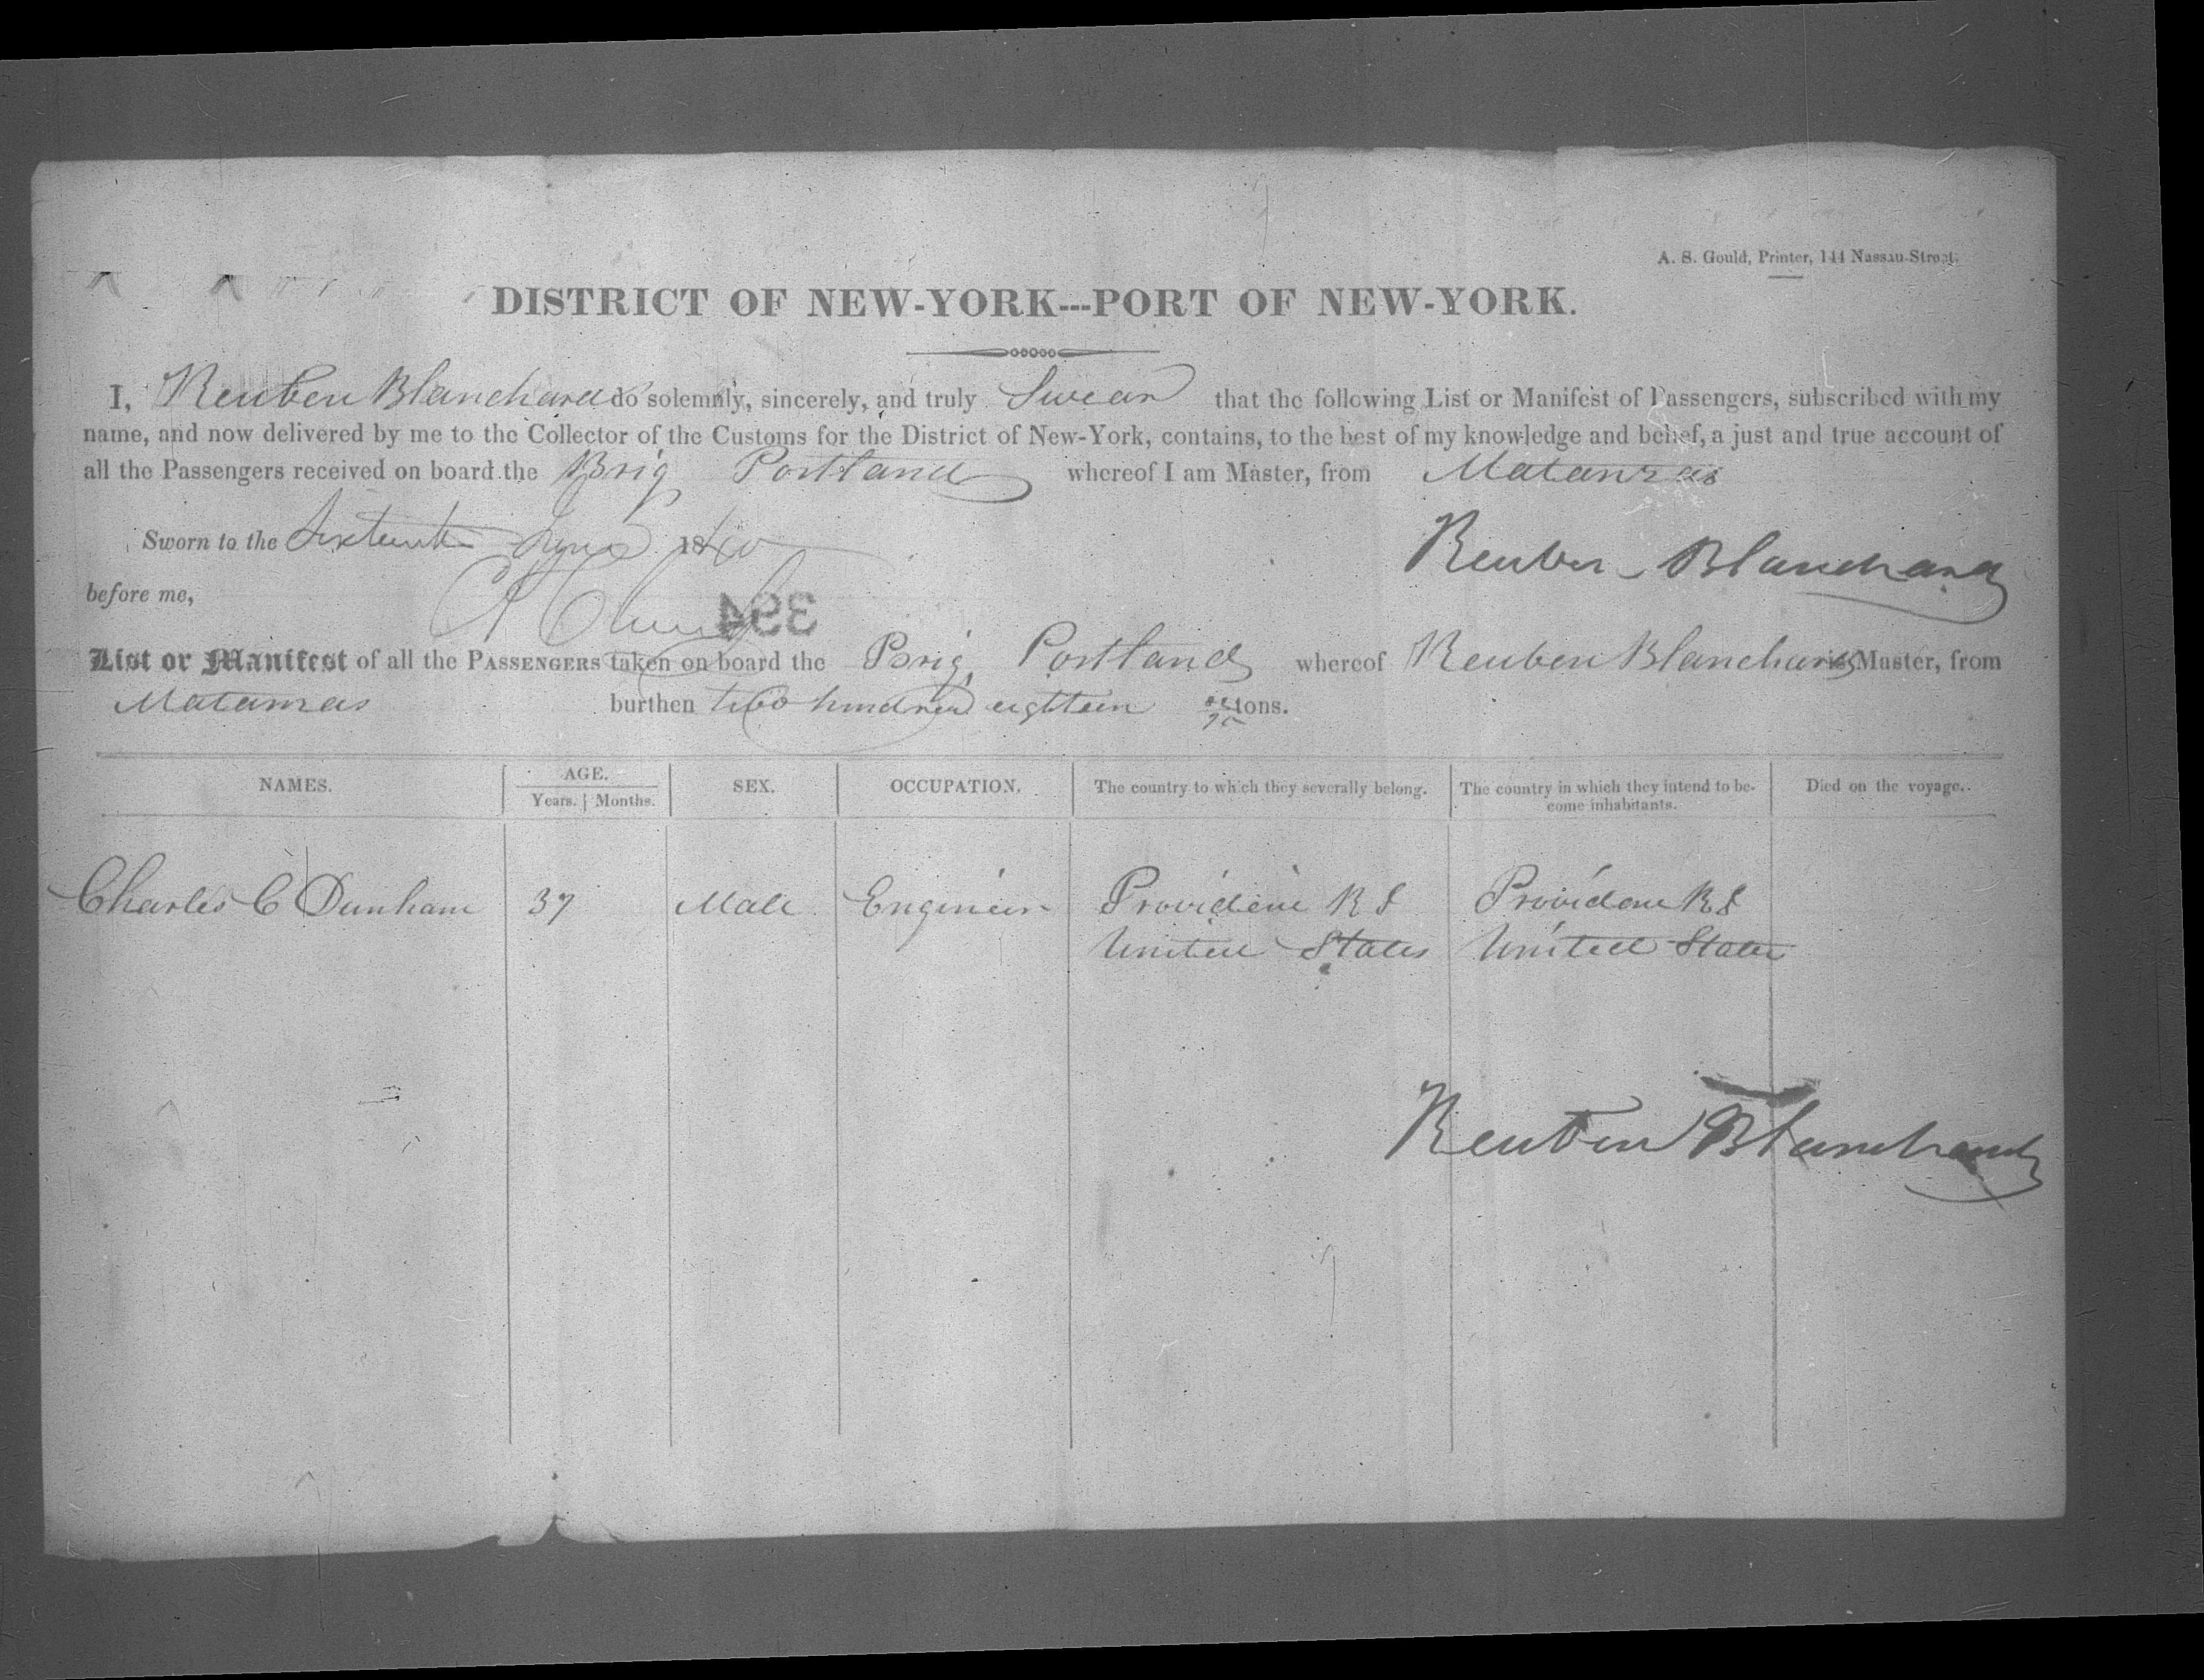 A. S. Gould, Printer, 144 Nassau-Street.
DISTRICT OF NEW-YORK---PORT OF NEW-YORK.
I, Reuben Blanchard do solemnly, sincerely, and truly Swear that the following List or Manifest of Passengers, subscribed with my
name, and now delivered by me to the Collector of the Customs for the District of New-York, contains, to the best of my knowledge and belief, a just and true account of
all the Passengers received on board the Brig Portland whereof I am Master, from Matanzas
Sworn to the Sixteenth June 1840
Reuben Blanchard
before me,
394
List or Manifest of all the PASSENGERS taken on board the Brig Portland whereof Reuben Blanchard is Master, from
Matanzas burthen two hundred eighteen tons.
NAMES. AGE. SEX. OCCUPATION. The country to which they severally belong. The country in which they intend to be-
Years. Months. come inhabitants. Died on the voyage.
Charles C Dunham 37 Male Engineer Providence R I Providence R I
United States United States
Reuben Blanchard